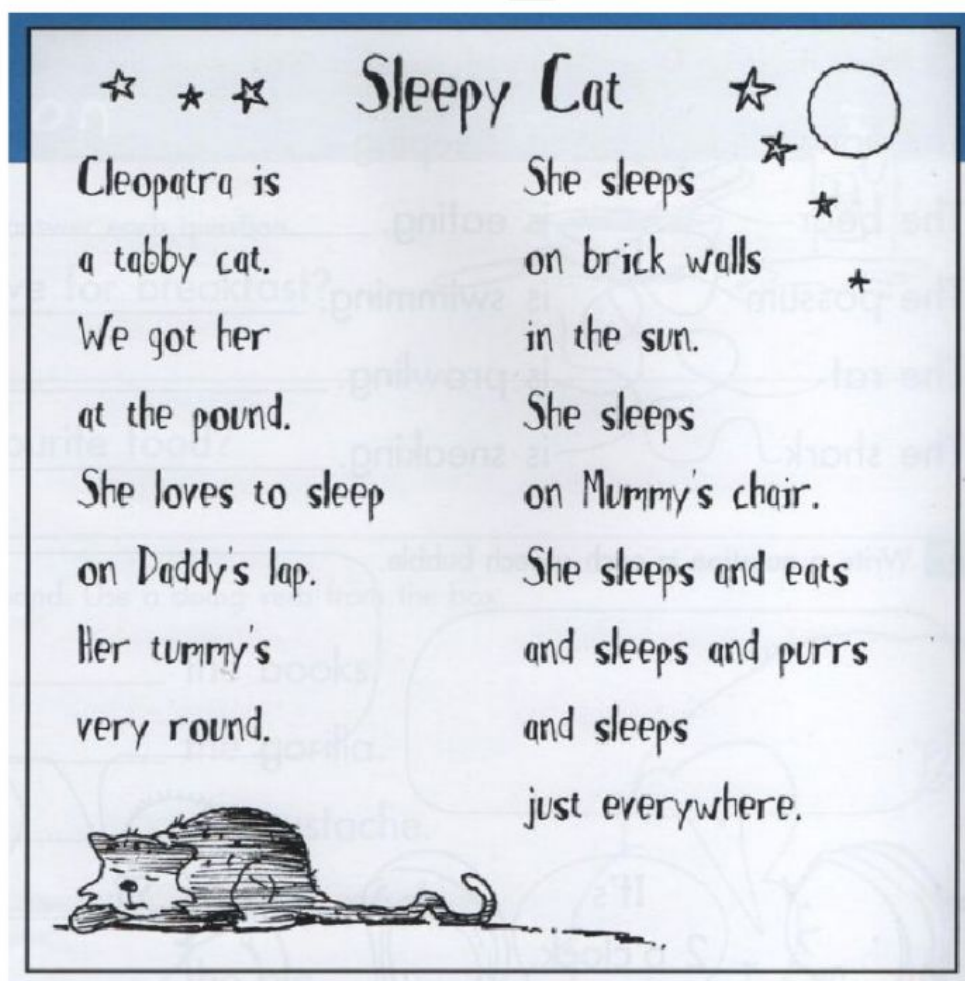 Sleepy Cat
Cleopatra is
a tabby cat.
We got her
at the pound.
She loves to sleep
on Daddy's lap.
Her tummy's
very round.
She sleeps
on brick walls
in the sun.
She sleeps
on Mummy's chair.
She sleeps and eats
and sleeps and purrs
and sleeps
just everywhere.